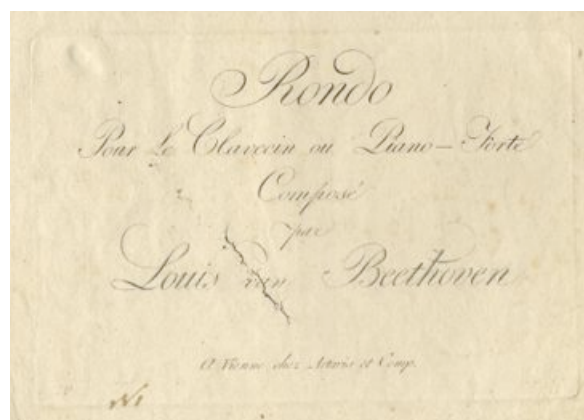 Rondo
Pour Le Clavecin ou Piano–Forte
Composé
par
Louis van Beethoven
A Vienne chez Artaria et Comp.